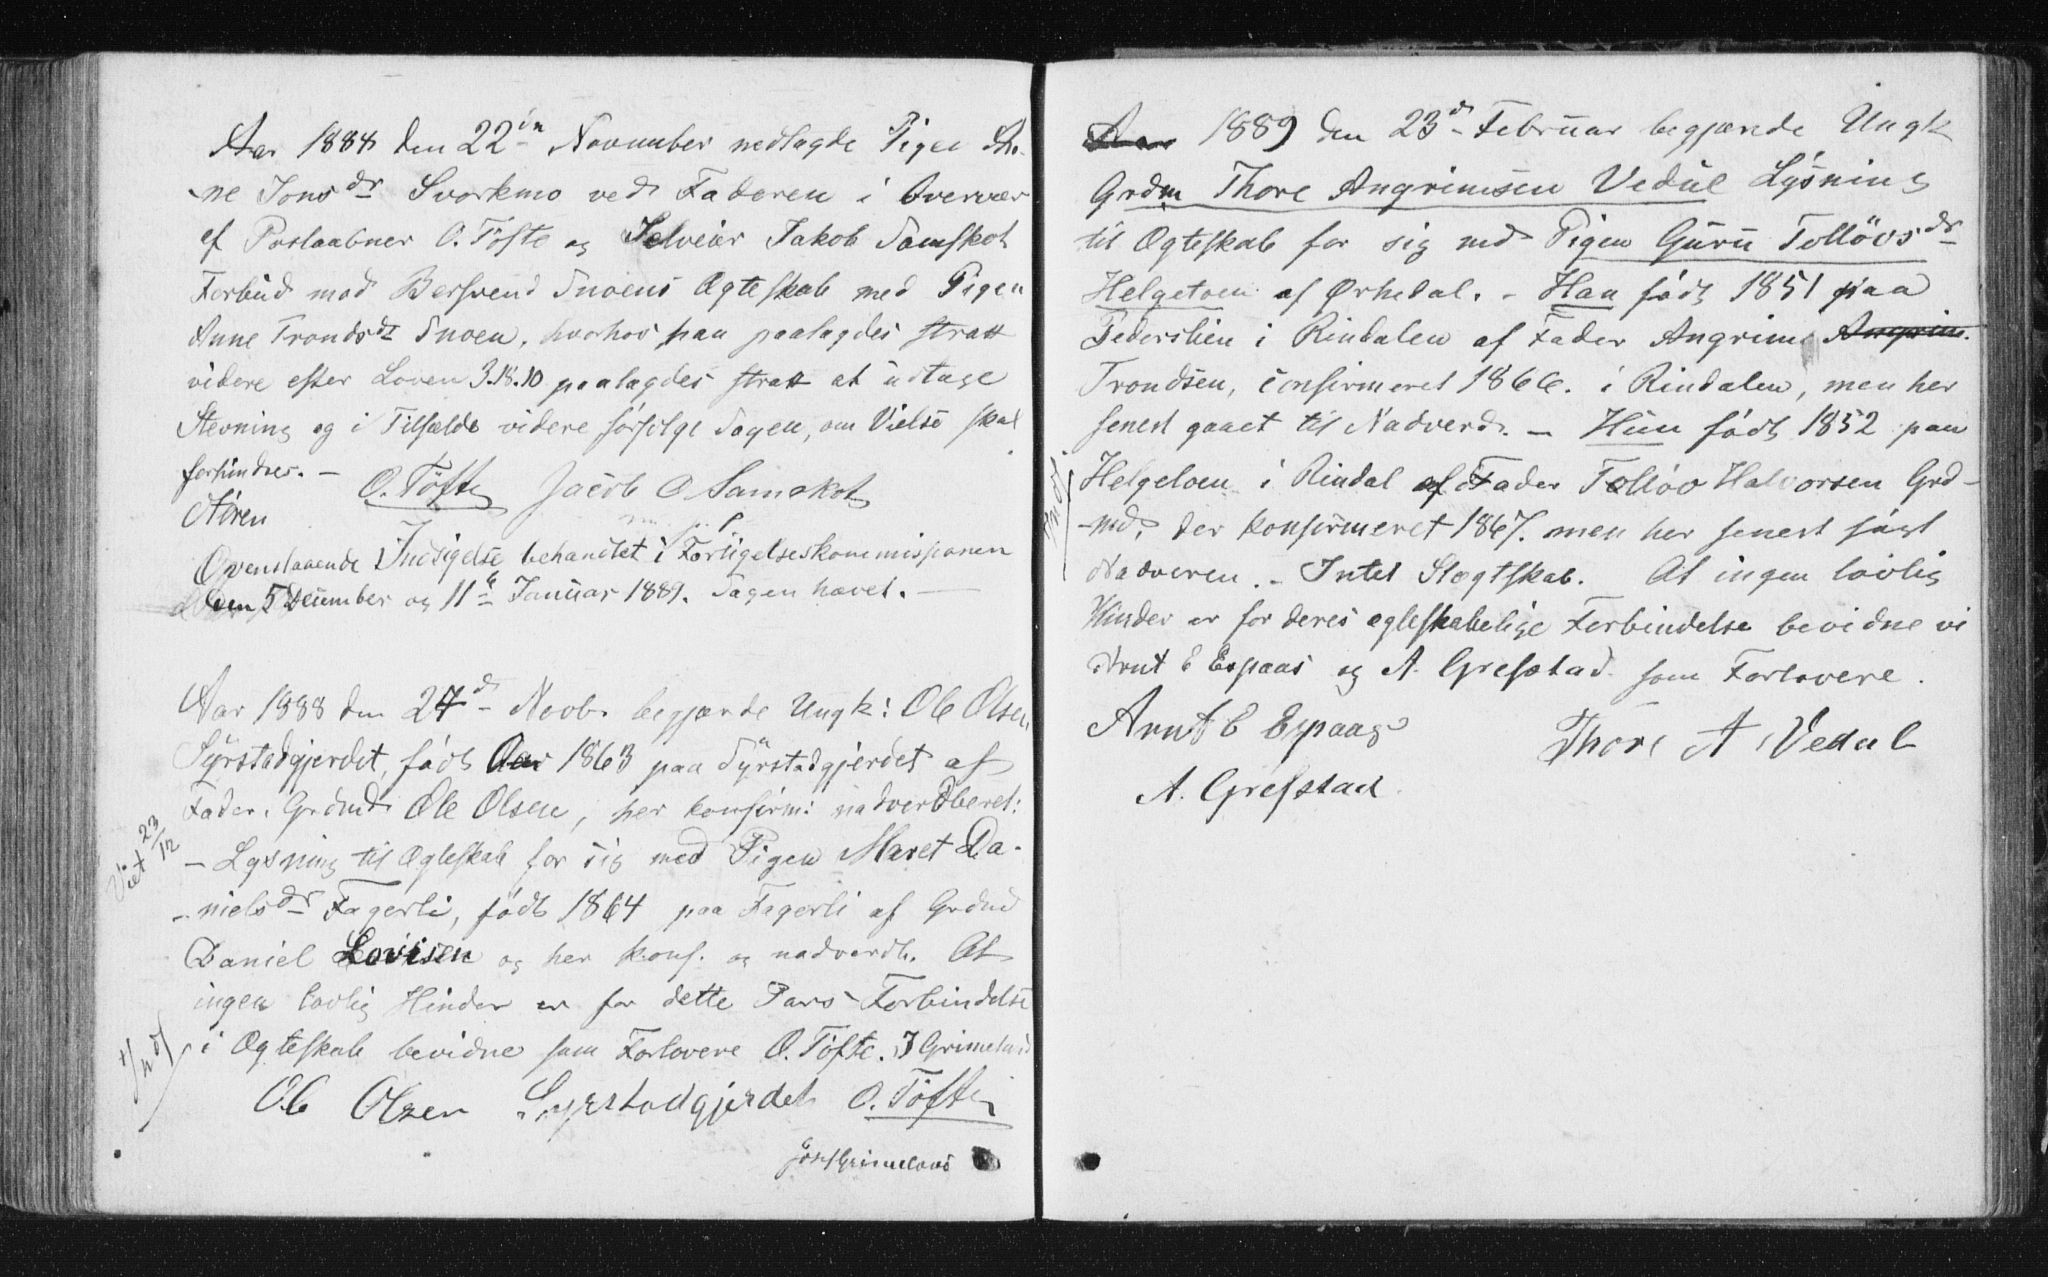 Aar 1888 den 22de November nedlagde Pigen An-
ne Jonsdr Svorkmo ved Faderen i Overvær
af Postaabner O. Tøfte og Selveier Jakob Samskot
Forbud mod Berhend Snoens Ægteskab med Pigen
Anne Trondsdt Snoen, hvorhos han paalagdes strax
videre efter Loven 3.18.10 paalagdes strax at udtage
Stevning og i Tilfælde videre forfølge Sagen, om Vielse skal
forhindres. —
O. Tøfte Jacob O Samskot
Støren
Ovenstaaende Indsigelse behandlet i Forligelseskommissionen
den 5 December og 11te Januar 1889. Sagen hævet. —
Aar 1888 den 24d Novbr begjærede Ungk: Ole Olsen
Syrstadgjerdet, født Aar 1863 paa Syrstadgjerdet af
Fader, Grdmd Ole Olsen, her konfirm: nadverdberet:
Viet 23/12
— Lysning til Ægteskab for sig med Pigen Maret Da-
-nielsdr Fagerli, født 1864 paa Fagerli af Grdmd
Daniel Lovisen og her konf. og nadverdb. At
ingen lovlig Hinder er for dette Pars Forbindelse
i Ægteskab bevidne som Forlovere O. Tøfte. J Grimelund
Ole Olsen Syrstadgjerdet O. Tøfte
Grimelund
Aar 1889 den 23d Februar begjærede Ungk
Grdm Thore Angrimsen Vedul Lysning
til Ægteskab for sig med Pigen Guru Tolløvsdr
Helgetoen af Ørkedal. - Han født 1851 paa
Pederslien i Rindalen af Fader Angrim Angrim.
Trondsen, confirmeret 1866. i Rindalen, men her
senest gaaet til Nadverd. — Hun født 1852 paa
Helgetoen i Rindal af Fader Tolløv Halvorsen Grd-
-md, der konfirmeret 1867. men her senest søgt
Nadveren. - Intet Slægtskab. At ingen lovlig
Hinder er for deres egteskabelige Forbindelse bevidne vi
Arnt E Espaas og A. Grefstad som Forlovere.
Arnt E Espaas Thore A Vedul
A. Grefstad